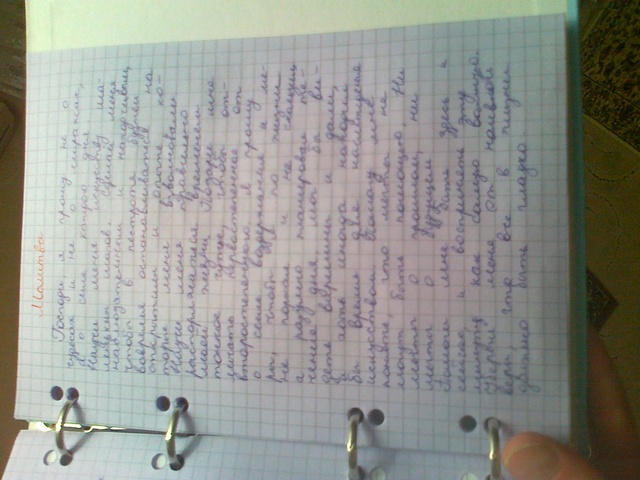 Молитва
Господи, я прошу не о
чудесах и не о миражах,
а о силе каждого дня.
Научи меня искусству ма-
леньких шагов. Сделай меня
наблюдательным и находчивым,
чтобы в пестроте будней
вовремя останавливаться на
открытиях и опыте, ко-
торые меня взволновали.
Научи меня правильно
распоряжаться временем
моей жизни. Подари мне
тонкое чутье, чтобы от-
личать первостепенное от
второстепенного. Я прошу
о силе воздержания и ме-
ры, чтобы я по жизни
не порхал и не скользил,
а разумно планировал те-
чение дня, мог бы ви-
деть вершины и дали,
и хоть иногда находил
бы время для наслаждения
искусством. Помоги мне
понять, что мечты не
могут быть помощью. Ни
мечты о прошлом, ни
мечты о будущем.
Помоги мне быть здесь и
сейчас и воспринять эту
минуту как самую важную.
Убереги меня от наивной
веры, что все в жизни
должно быть гладко.